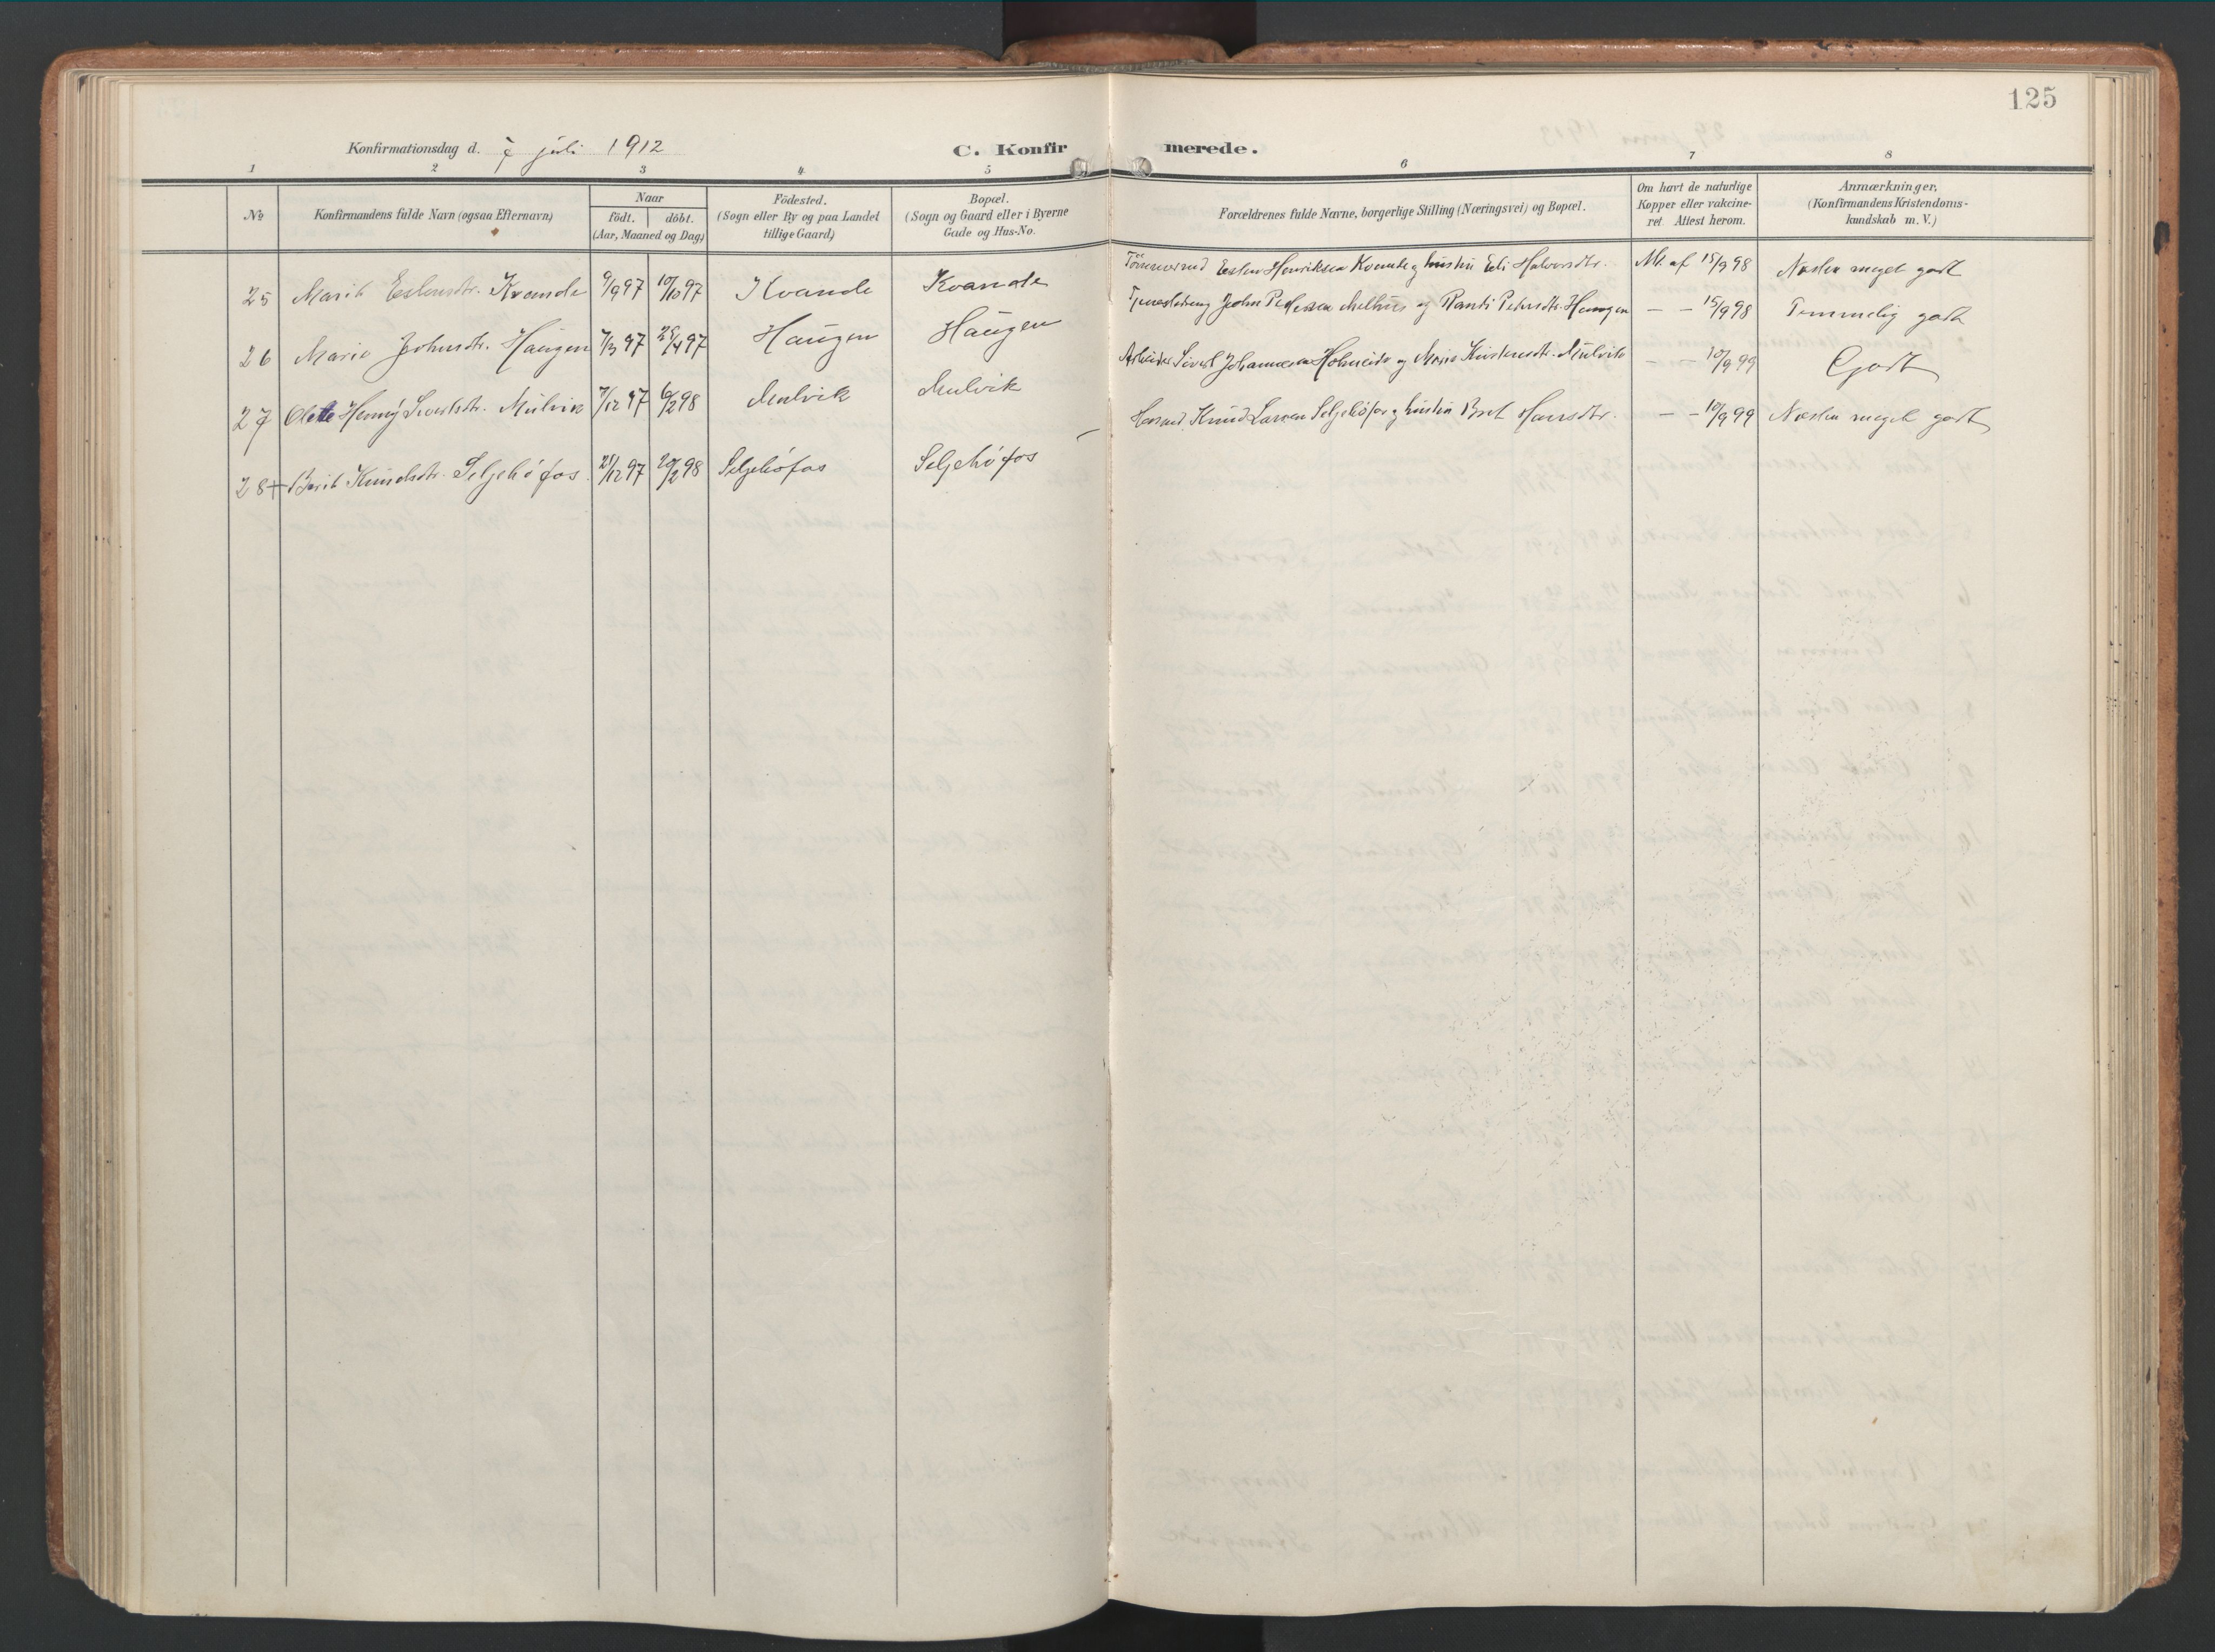 125
Konfirmationsdag d. 7 juli 1912
C. Konfirmerede.
1 2 3 4 5 6 7 8
No
Konfirmandens fulde Navn (ogsaa Efternavn)
Naar
födt. döbt.
(Aar, Maaned og Dag)
Födested.
(Sogn eller By og paa Landet
tillige Gaard)
Bopæl.
(Sogn og Gaard eller i Byerne
Gade og Hus-No.
Forældrenes fulde Navne, borgerlige Stilling (Næringsvei) og Bopæl.
Om havt de naturlige
Kopper eller vakcine-
ret. Attest herom.
Anmærkninger,
(Konfirmandens Kristendoms-
kundskab m. V.)
25 Marit Estensdtr. Kvande 9/9 97 10/10 97 Kvande Kvande Esten Henriksen Kvande og hustru Eli Halvorsdtr. M. af 15/9 98 Næsten meget godt
26 Marie Johnsdtr. Haugen 7/3 97 25/4 97 Haugen Haugen John Pedersen Melhus og Randi Petersdtr. Haugen — — 15/9 98 Temmelig godt
27 Olette Henny Sivertsdtr. Mulvik 7/12 97 6/2 98 Mulvik Mulvik Arbeider Sivert Johannesen Holmeide og Marie Kristensdtr. Mulvik — — 10/9 99 Godt
28 + Berit Knudsdtr. Seljehöfos 21/12 97 20/2 98 Seljehöfos Seljehöfos — Husmd. Knud Larsen Seljehöfos og hustru Brit Hansdtr. — — 10/9 99 Næsten meget godt